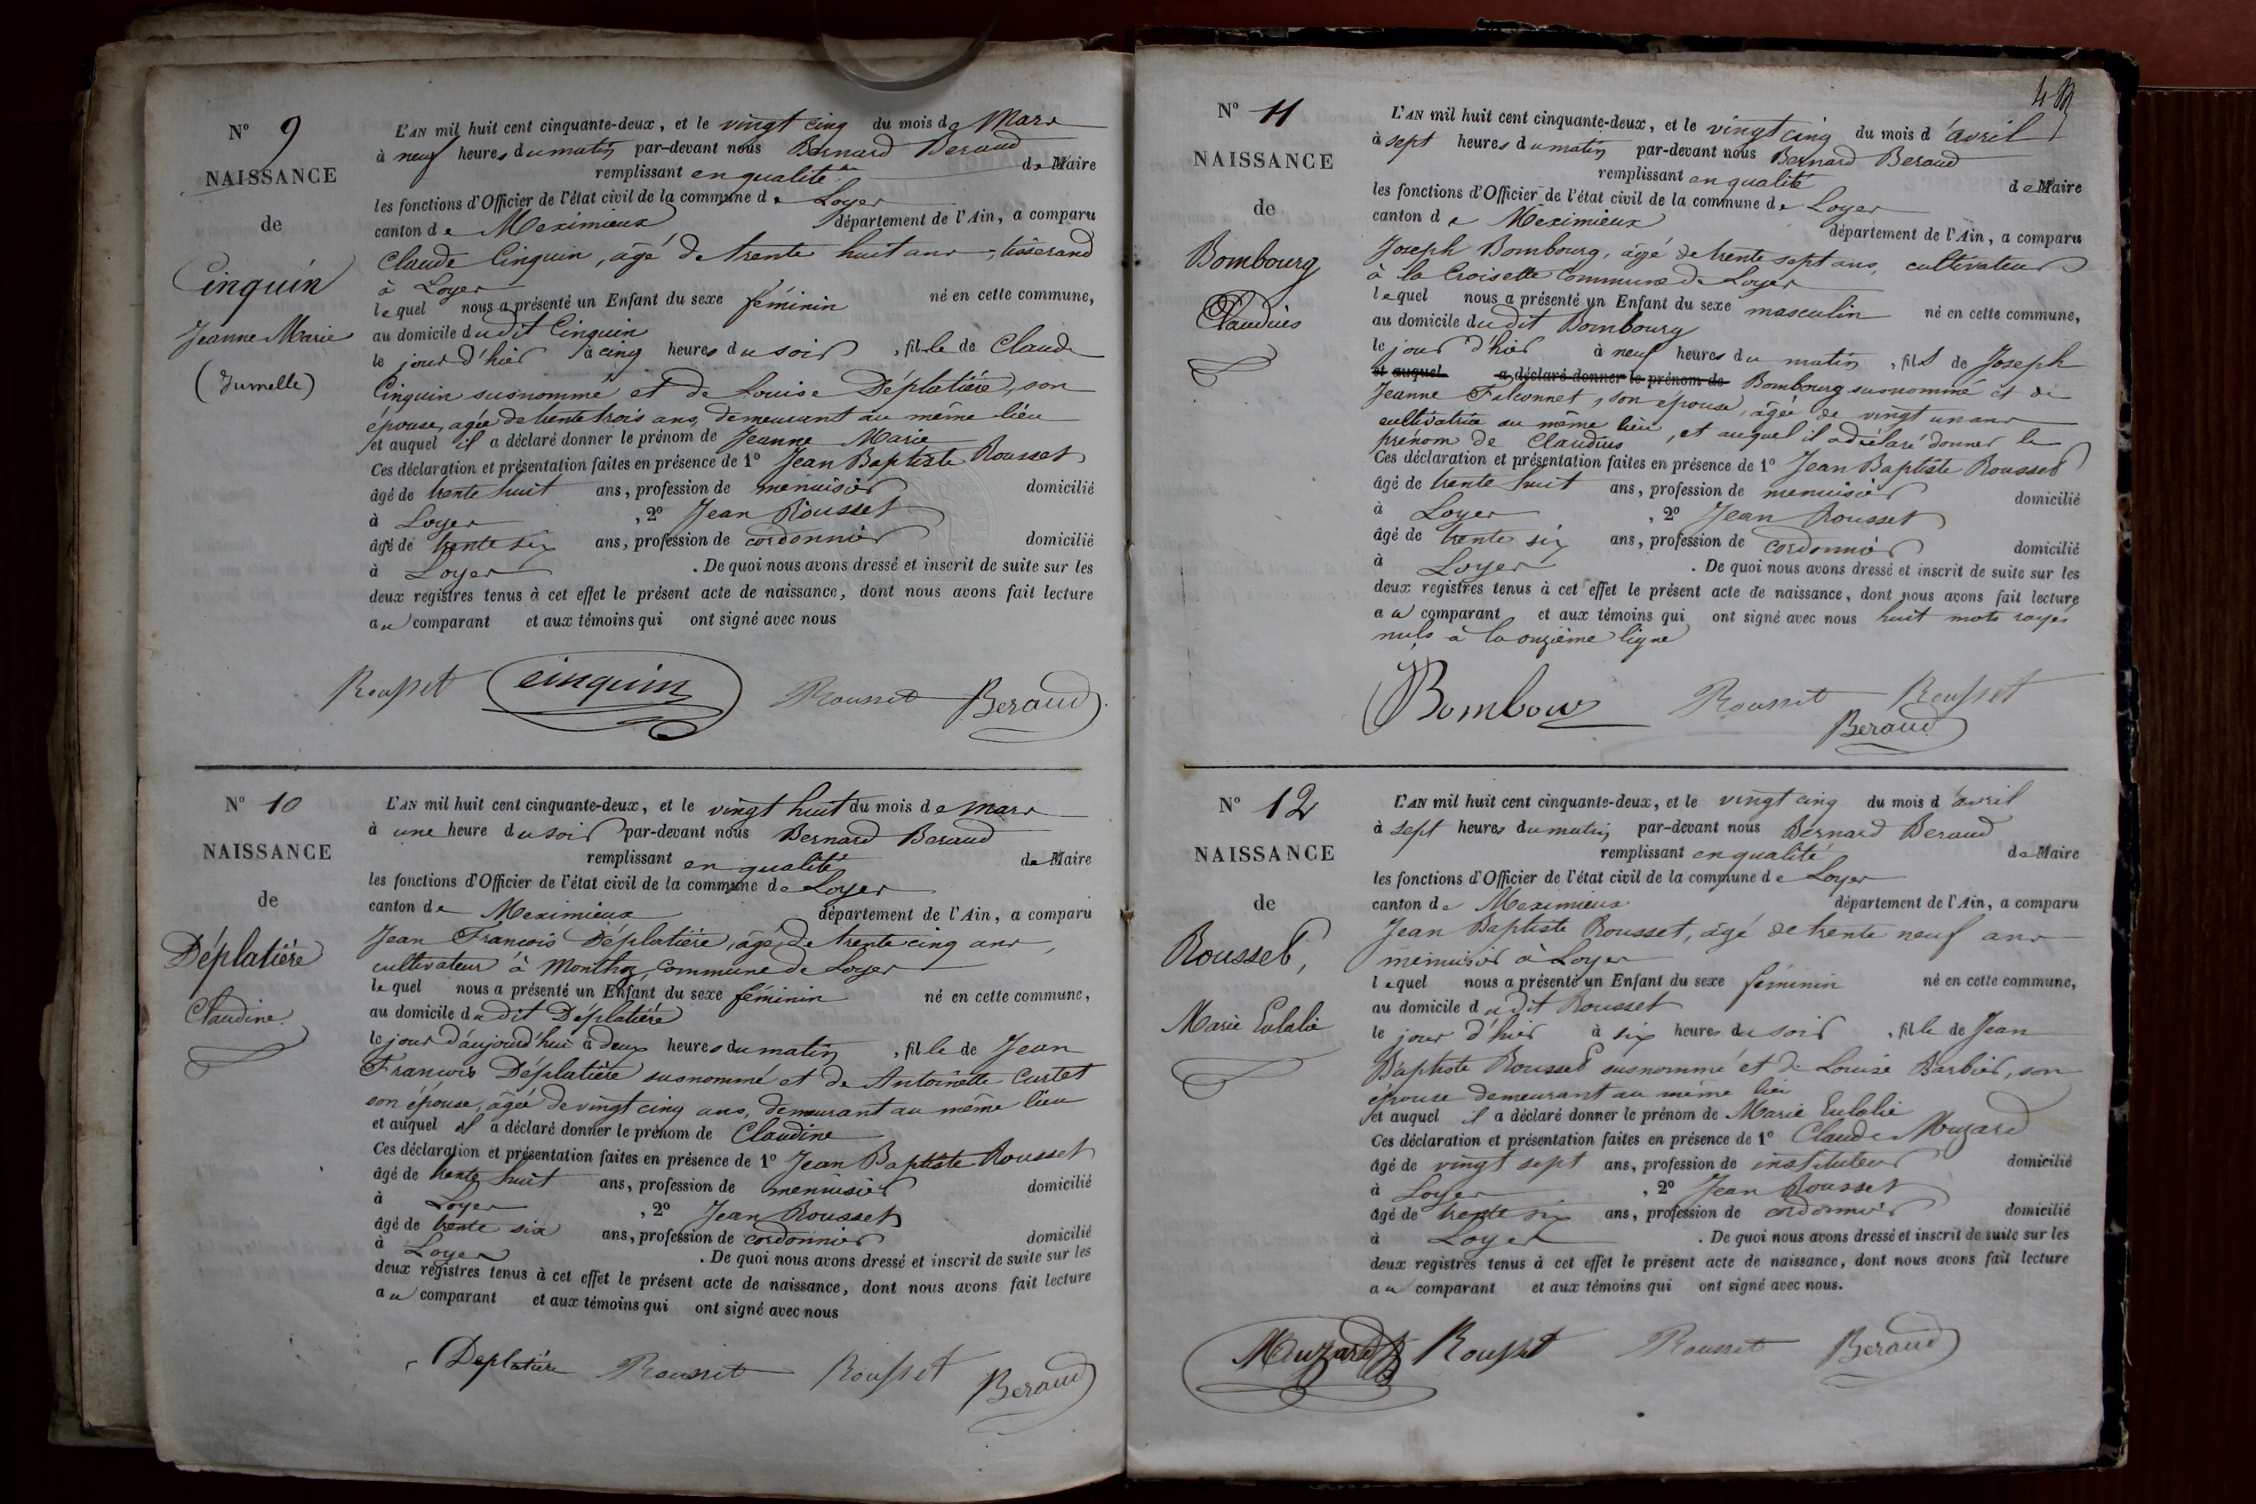 N° 9
NAISSANCE
de
Cinquin
Jeanne Marie
(Jumelle)
L'AN mil huit cent cinquante-deux, et le vingt cinq du mois de Mars
à neuf heures du matin par-devant nous Bernard Beraud
remplissant en qualité de Maire
les fonctions d'Officier de l'état civil de la commune de Loyes
canton de Meximieux département de l'Ain, a comparu
Claude Cinquin, âgé de trente huit ans, tisserand
à Loyes
lequel nous a présenté un Enfant du sexe féminin né en cette commune,
au domicile dudit Cinquin
le jour d'hier à cinq heures du soir, fille de Claude
Cinquin susnommé et de Louise Déplatière, son
épouse, agée de trente trois ans, demeurant au même lieu
et auquel il a déclaré donner le prénom de Jeanne Marie
Ces déclaration et présentation faites en présence de 1° Jean Baptiste Rousset
âgé de trente huit ans, profession de menuisier domicilié
à Loyes, 2° Jean Rousset
âgé de trente six ans, profession de cordonnier domicilié
à Loyes. De quoi nous avons dressé et inscrit de suite sur les
deux registres tenus à cet effet le présent acte de naissance, dont nous avons fait lecture
au comparant et aux témoins qui ont signé avec nous
Rousset cinquin Rousset Beraud
N° 10
NAISSANCE
de
Déplatière
Claudine
L'AN mil huit cent cinquante-deux, et le vingt huit du mois de mars
à une heure du soir par-devant nous Bernard Beraud
remplissant en qualité de Maire
les fonctions d'Officier de l'état civil de la commune de Loyes
canton de Meximieux département de l'Ain, a comparu
Jean François Déplatière, âgé de trente cinq ans,
cultivateur à Monthoz, commune de Loyes
lequel nous a présenté un Enfant du sexe féminin né en cette commune,
au domicile dudit Déplatière
le jour d'aujourd'hui à deux heures du matin, fille de Jean
François Déplatière susnommé et de Antoinette Curtet
son épouse, âgée de vingt cinq ans, demeurant au même lieu
et auquel il a déclaré donner le prénom de Claudine
Ces déclaration et présentation faites en présence de 1° Jean Baptiste Rousset
âgé de trente huit ans, profession de menuisier domicilié
à Loyes, 2° Jean Rousset
âgé de trente six ans, profession de cordonnier domicilié
à Loyes. De quoi nous avons dressé et inscrit de suite sur les
deux registres tenus à cet effet le présent acte de naissance, dont nous avons fait lecture
au comparant et aux témoins qui ont signé avec nous
Deplatière Rousset Rousset Beraud
N° 11
NAISSANCE
de
Bombourg
Claudius
L'AN mil huit cent cinquante-deux, et le vingt cinq du mois d'avril
à sept heures du matin par-devant nous Bernard Beraud
remplissant en qualité de Maire
les fonctions d'Officier de l'état civil de la commune de Loyes
canton de Meximieux département de l'Ain, a comparu
Joseph Bombourg, âgé de trente sept ans, cultivateur
à la Croisette commune de Loyes
lequel nous a présenté un Enfant du sexe masculin né en cette commune,
au domicile dudit Bombourg
le jour d'hier à neuf heures du matin, fils de Joseph
et auquel a déclaré donner le prénom de Bombourg susnommé et de
Jeanne Falconnet, son épouse, âgée de vingt un ans
cultivatrice au même lieu, et auquel il a déclaré donner le
prénom de Claudius
Ces déclaration et présentation faites en présence de 1° Jean Baptiste Rousset
âgé de trente huit ans, profession de menuisier domicilié
à Loyes, 2° Jean Rousset
âgé de trente six ans, profession de cordonnier domicilié
à Loyes. De quoi nous avons dressé et inscrit de suite sur les
deux registres tenus à cet effet le présent acte de naissance, dont nous avons fait lecture
au comparant et aux témoins qui ont signé avec nous huit mots rayés
nuls à la onzième ligne
Bombour Rousset Rousset
Beraud
N° 12
NAISSANCE
de
Rousset,
Marie Eulalie
L'AN mil huit cent cinquante-deux, et le vingt cinq du mois d'avril
à sept heures du matin par-devant nous Bernard Beraud
remplissant en qualité de Maire
les fonctions d'Officier de l'état civil de la commune de Loyes
canton de Meximieux département de l'Ain, a comparu
Jean Baptiste Rousset, âgé de trente neuf ans
menuisier à Loyes
lequel nous a présenté un Enfant du sexe féminin né en cette commune,
au domicile dudit Rousset
le jour d'hier à six heures du soir, fille de Jean
Baptiste Rousset susnommé et de Louise Barbier, son
épouse demeurant au même lieu
et auquel il a déclaré donner le prénom de Marie Eulalie
Ces déclaration et présentation faites en présence de 1° Claude Muzard
âgé de vingt sept ans, profession de instituteur domicilié
à Loyes, 2° Jean Rousset
âgé de trente six ans, profession de cordonnier domicilié
à Loyes. De quoi nous avons dressé et inscrit de suite sur les
deux registres tenus à cet effet le présent acte de naissance, dont nous avons fait lecture
au comparant et aux témoins qui ont signé avec nous.
Muzard Rousset Rousset Beraud